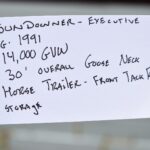 OUNDOWNER - EXECUTIVE
G. 1991
14,000 GVW
30' OVERALL GOOSE NECK
HORSE TRAILER - FRONT TACK R
STORAGE